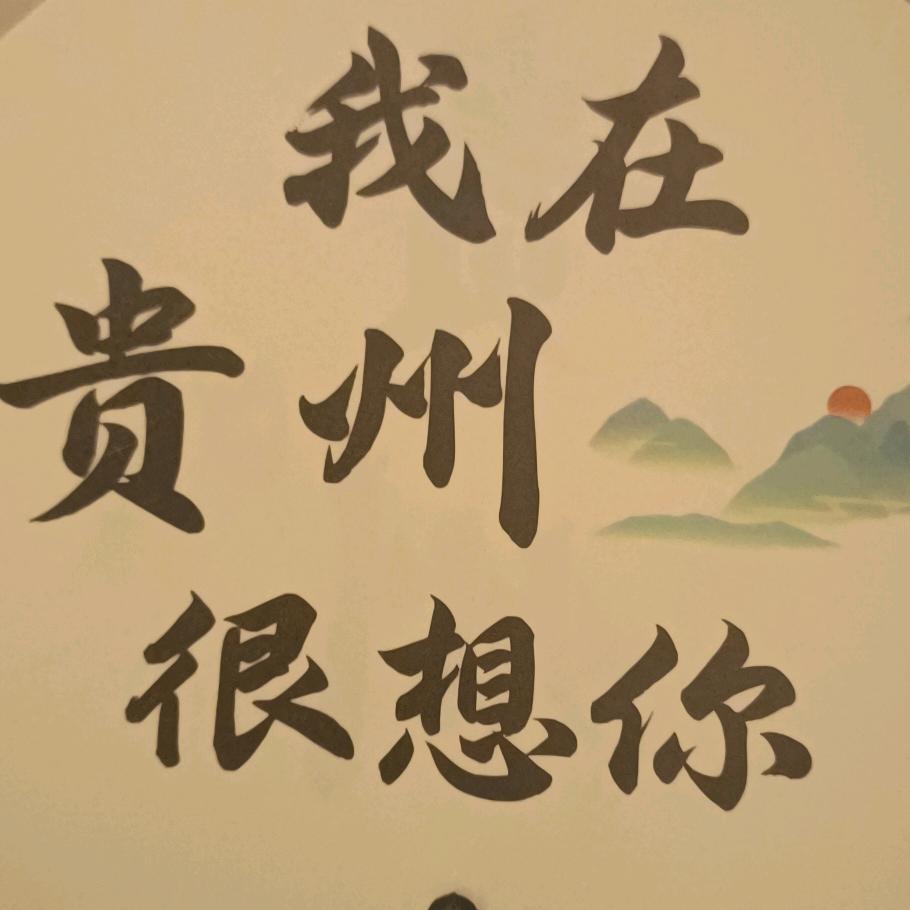 我在
贵州
很想你